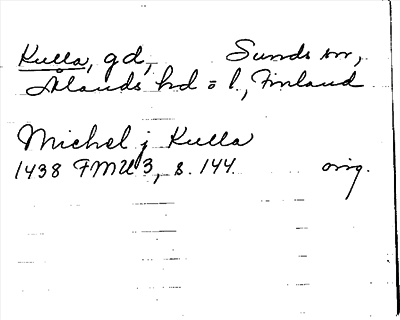 Kulla, gd, Sunds sn,
Ålands hd o l, Finland
Michel j Kulla
1438 FMU 3, s. 144. orig.